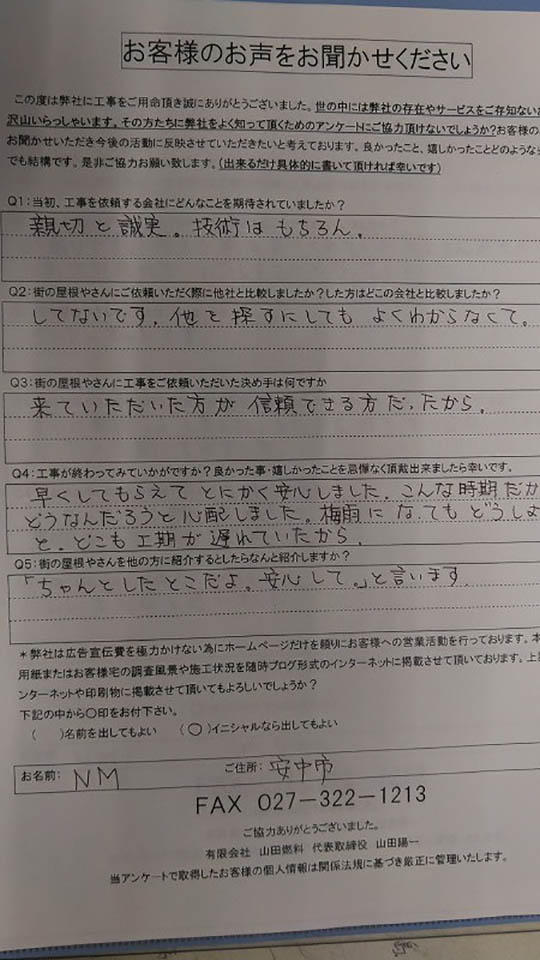 お客様のお声をお聞かせください
この度は弊社に工事をご用命頂き誠にありがとうございました。世の中には弊社の存在やサービスをご存知ない
沢山いらっしゃいます。その方たちに弊社をよく知って頂くためのアンケートにご協力頂けないでしょうか?お客様の
お聞かせいただき今後の活動に反映させていただきたいと考えております。良かったこと、嬉しかったことどのような
でも結構です。是非ご協力お願い致します。(出来るだけ具体的に書いて頂ければ幸いです)
Q1:当初、工事を依頼する会社にどんなことを期待されていましたか?
親切と誠実。技術はもちろん。
Q2:街の屋根やさんにご依頼いただく際に他社と比較しましたか?した方はどこの会社と比較しましたか?
してないです。他を探すにしてもよくわからなくて。
Q3:街の屋根やさんに工事をご依頼いただいた決め手は何ですか
来ていただいた方が信頼できる方だったから。
Q4:工事が終わってみていかがですか?良かった事・嬉しかったことを忌憚なく頂戴出来ましたら幸いです。
早くしてもらえてとにかく安心しました。こんな時期だか
どうなんだろうと心配しました。梅雨になってもどうしよ
と。どこも工期が遅れていたから。
Q5:街の屋根やさんを他の方に紹介するとしたらなんと紹介しますか?
「ちゃんとしたとこだよ。安心して。」と言います
*弊社は広告宣伝費を極力かけない為にホームページだけを頼りにお客様への営業活動を行っております。本
用紙またはお客様宅の調査風景や施工状況を随時ブログ形式のインターネットに掲載させて頂いております。上
ンターネットや印刷物に掲載させて頂いてもよろしいでしょうか?
下記の中から○印をお付下さい。
( )名前を出してもよい (○)イニシャルなら出してもよい
お名前: NM ご住所: 安中市
FAX 027-322-1213
ご協力ありがとうございました。
有限会社 山田燃料 代表取締役 山田陽一
当アンケートで取得したお客様の個人情報は関係法規に基づき厳正に管理いたします。